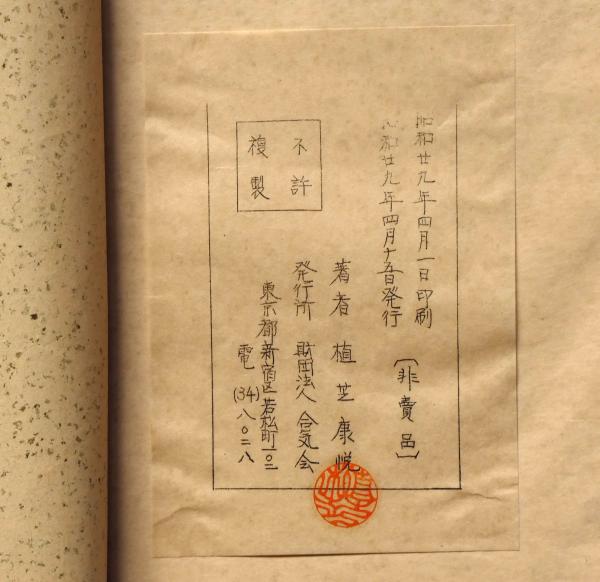 昭和廿九年四月一日印刷
昭和廿九年四月十五日発行
〔非賣品〕
著者 植芝康悦
発行所 財団法人合気会
東京都新宿区若松町一〇二
電(34)八〇二八
不許
複製